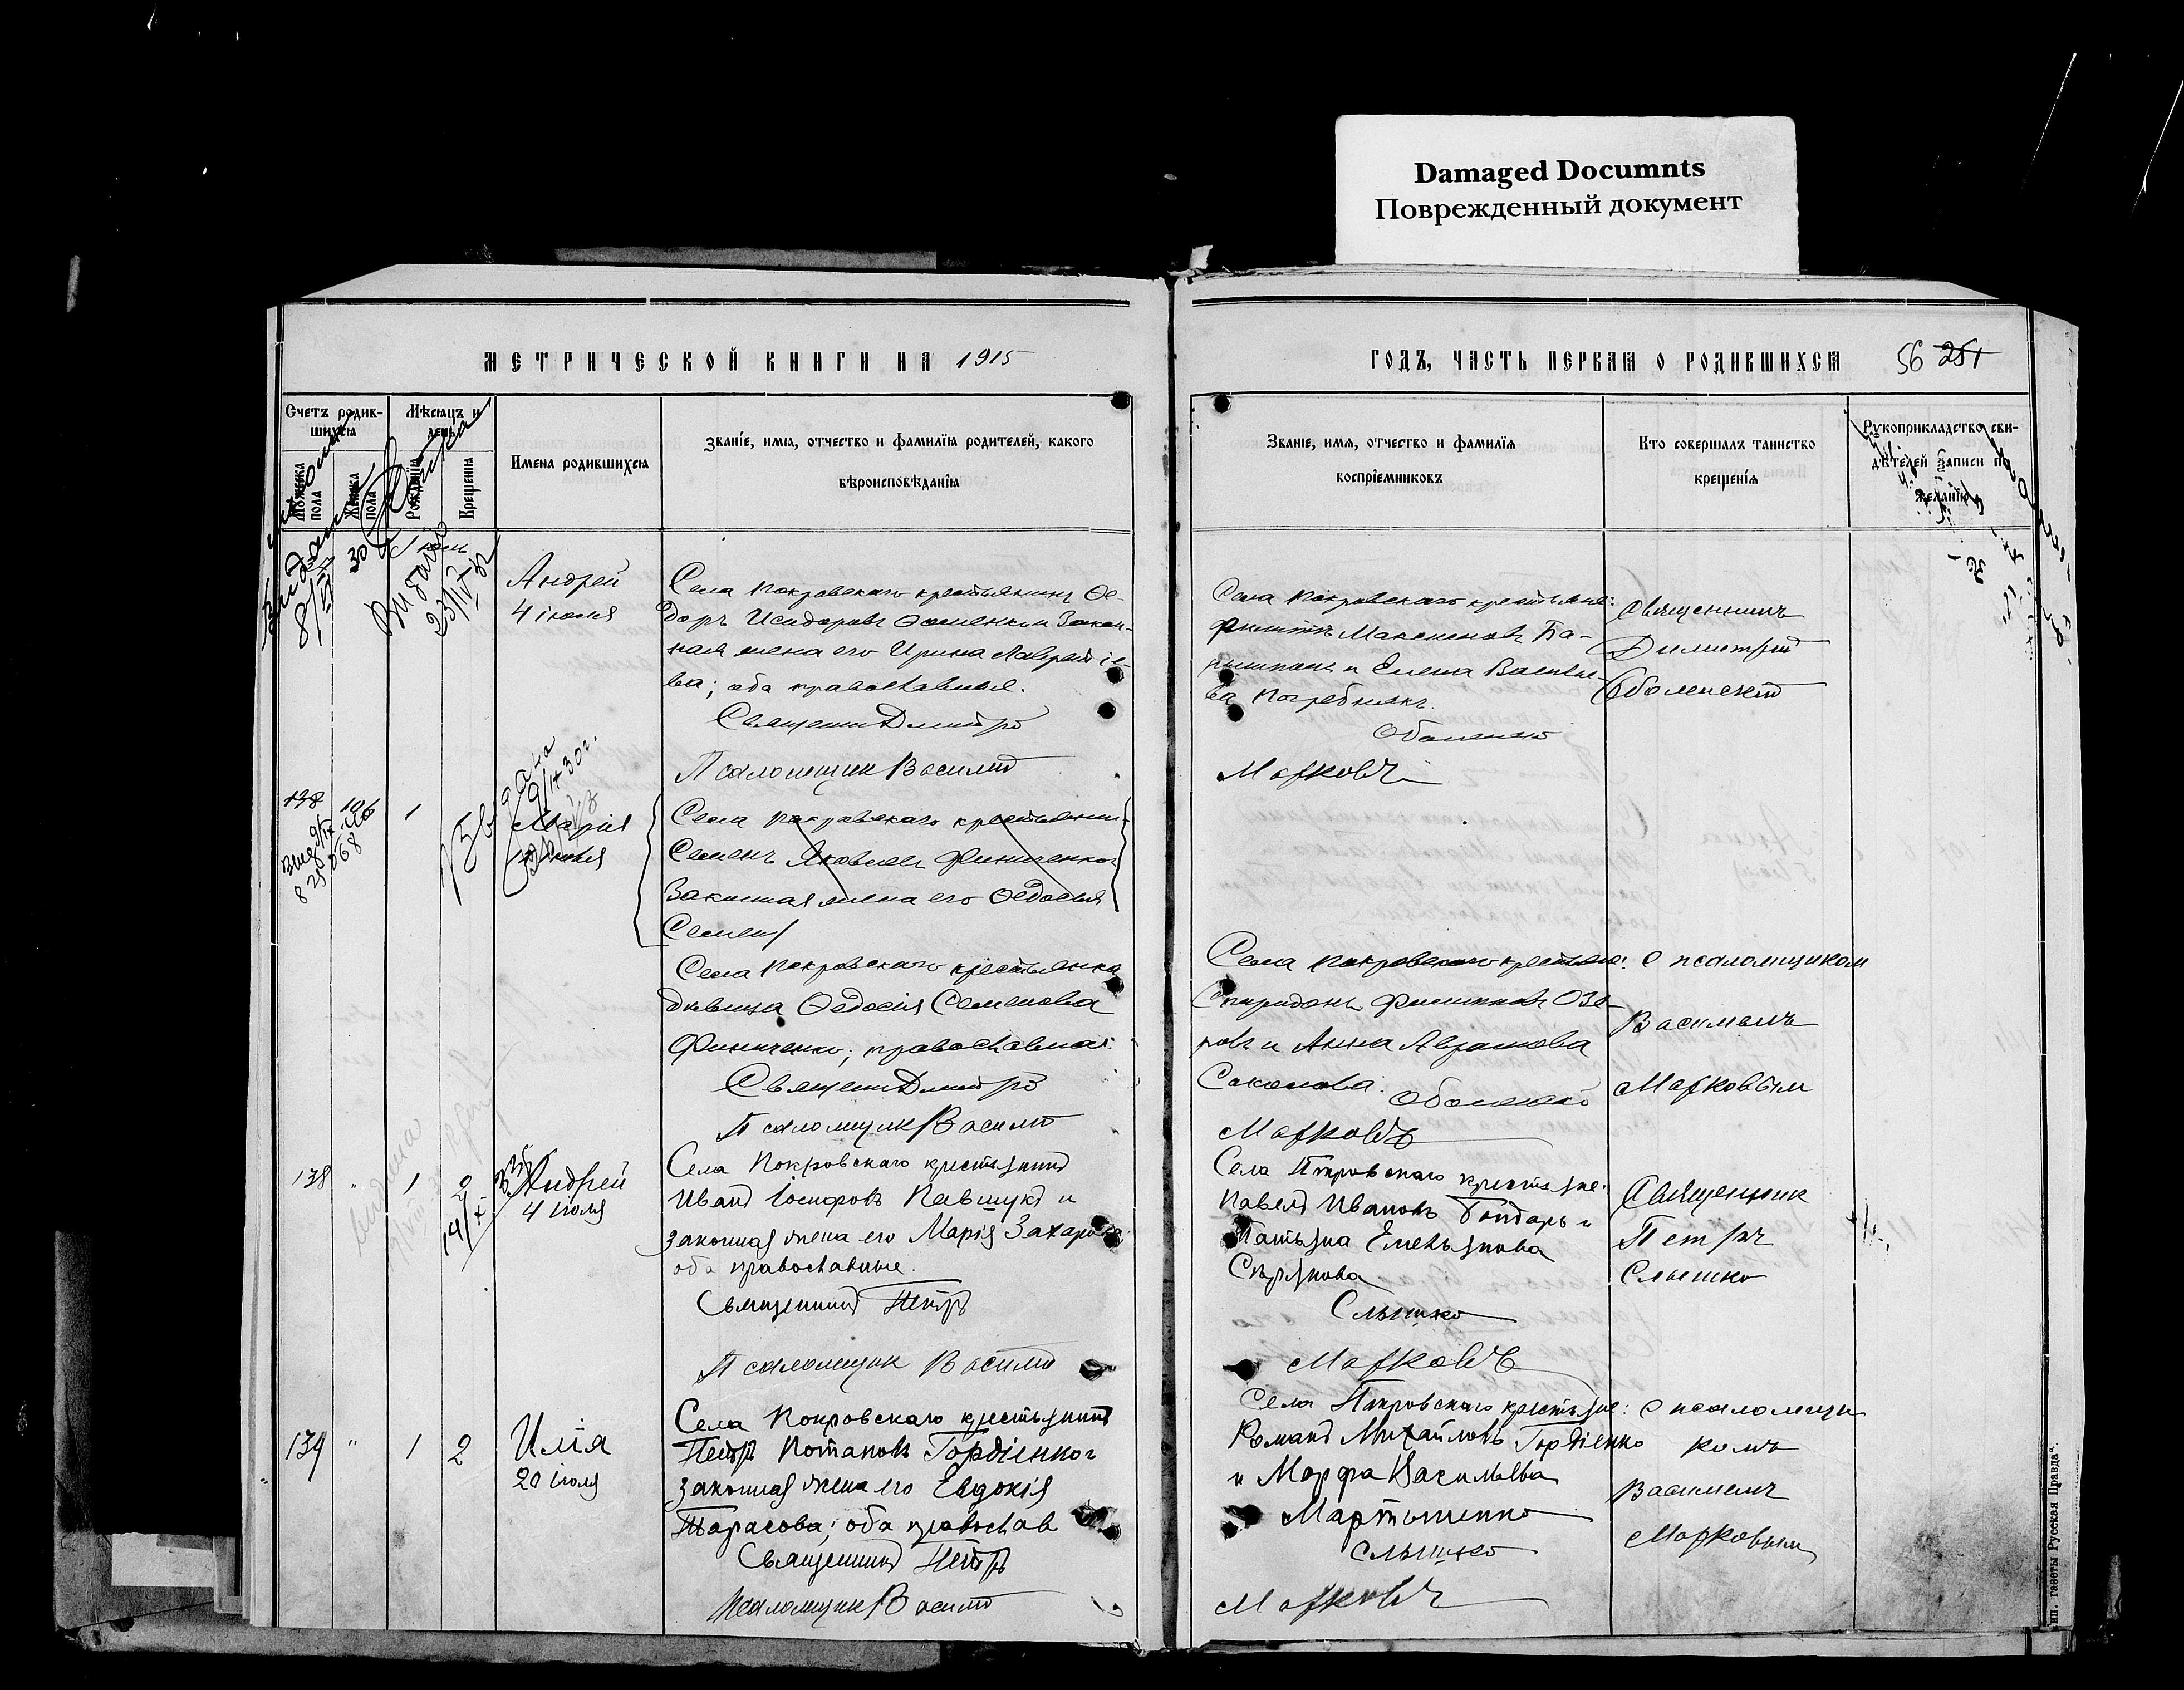 Damaged Documnts
Поврежденный документ
МЕТРИЧЕСКОЙ КНИГИ НА 1915
ГОДЪ, ЧАСТЬ ПЕРВАЯ О РОДИВШИХСЯ 56 251
Счетъ родив-
шихся
Мѣсяцъ и
день
Мужеска
пола
Женска
пола
Рожденія
Крещенія
Имена родившихся
Званіе, имя, отчество и фамилія родителей, какого
вѣроисповѣданія
Званіе, имя, отчество и фамилія
воспріемниковъ
Кто совершалъ таинство
крещенія
Рукоприкладство сви-
дѣтелей записи по
желанію
30
Андрей
4 іюля
Села Покровскаго крестьянинъ Ѳе-
доръ Исидоровъ и Закон-
ная жена его Ирина Лаврентіе-
ва; оба православные.
Священникъ Димитрій
Псаломщикъ Василій
Села Покровскаго крестьяне:
Филиппъ Максимовъ
и Елена Василье-
ва Погребнякъ.
Оболенскій
Марковъ
Священникъ
Димитрій
Оболенскій
138
106
1
Марія
Села Покровскаго крестьянинъ
Семенъ Яковлевъ Финиченко и
Законная жена его Ѳедосія
Семен
Села Покровскаго крестьянка
дѣвица Ѳедосія Семенова
Финиченко; православная.
Священникъ Димитрій
Псаломщикъ Василій
Села Покровскаго крестьяне:
Спиридонъ Филипповъ Озе-
ровъ и Анна Аврамова
Соколова.
Оболенскій
Марковъ
С псаломщиком
Василіемъ
Марковым
138 " 1 2
Андрей
4 іюля
Села Покровскаго крестьянинъ
Иванъ Іосифовъ Павшукъ и
законная жена его Марія Захарова
оба православные.
Священникъ Петръ
Псаломщик Василій
Села Покровскаго крестьяне:
Павелъ Ивановъ Бондарь и
Татьяна Емельянова
Слышко
Марковъ
Священник
Петръ
Слышко
139 " 1 2
Илія
20 іюля
Села Покровскаго крестьянинъ
Петръ Потаповъ Гордіенко и
законная жена его Евдокія
Тарасова; оба православ
Священникъ Петръ
Псаломщик Василій
Села Покровскаго крестьяне:
Романъ Михайловъ Гордіенко
и Марфа Васильева
Мартыненко
Слышко
Марковъ
С псаломщи
комъ
Василіемъ
Марковым
газеты Русская Правда".